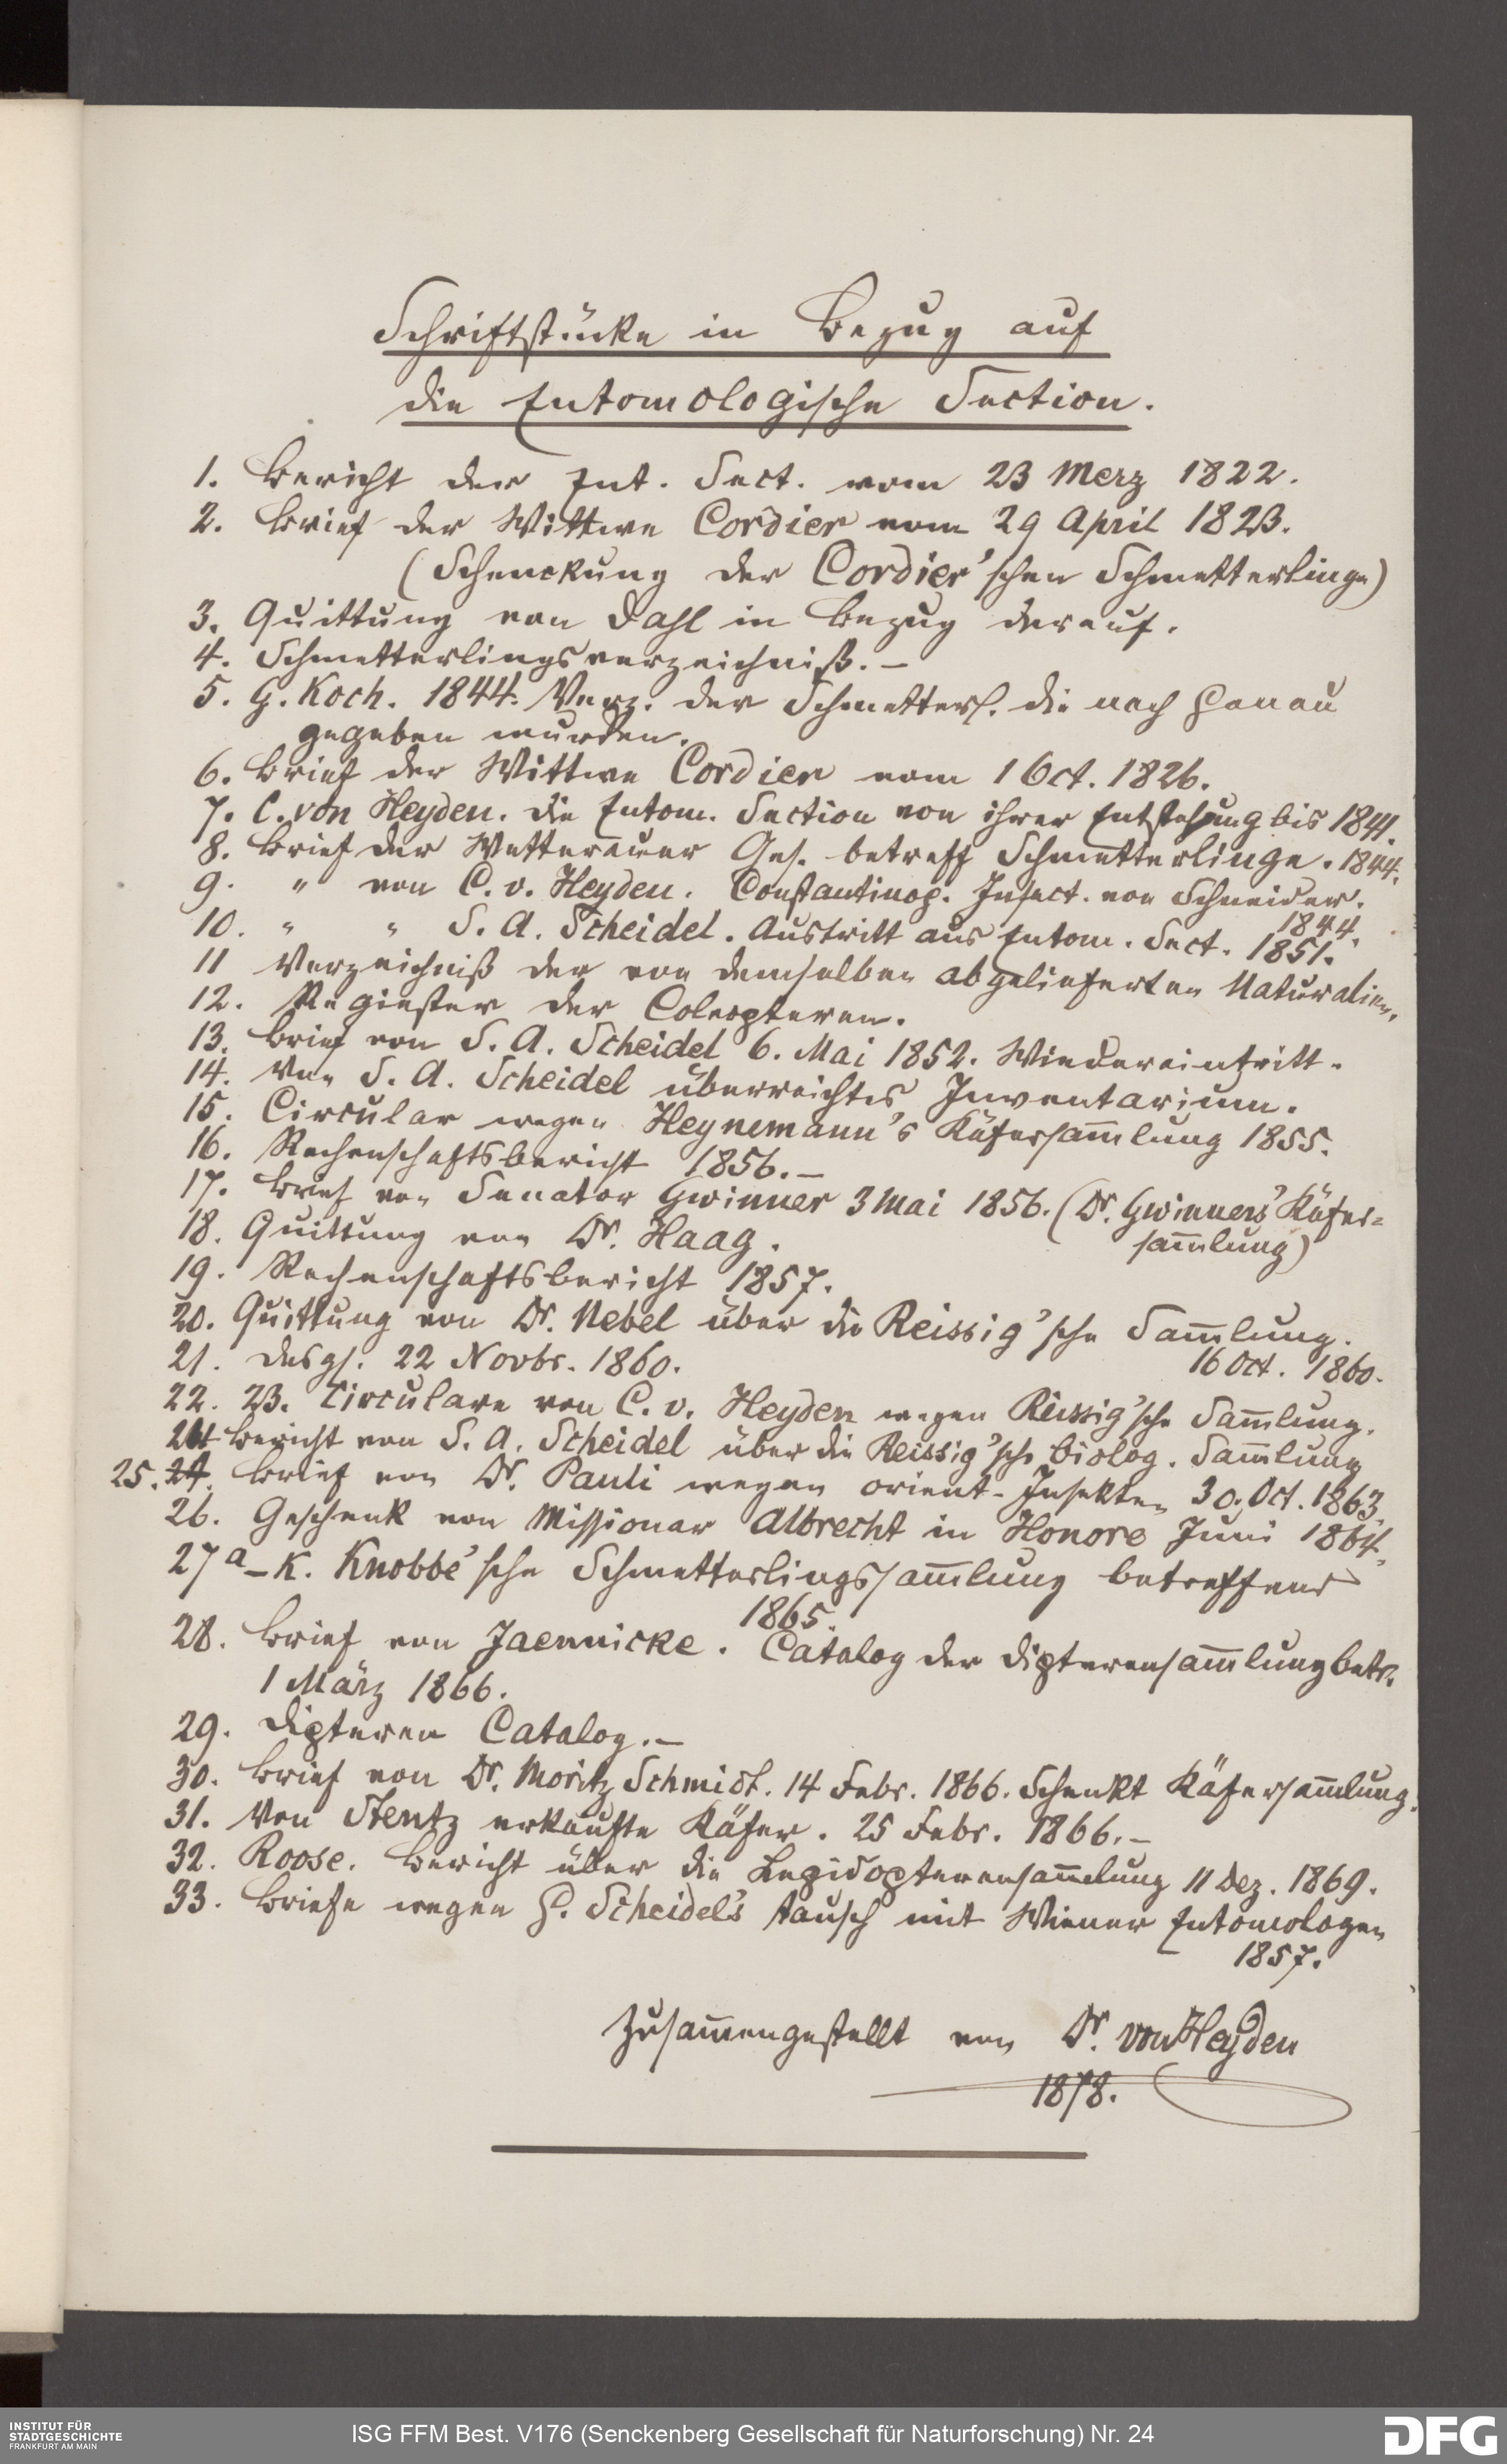 Schriftstücke in Bezug auf
die Entomologische Section.
1. Bericht der Ent. Sect. vom 23 Merz 1822.
2. Brief der Wittwe Cordier vom 29 April 1823.
(Schenckung der Cordier'schen Schmetterlinge)
3. Quittung von Dahl in Bezug darauf.
4. Schmetterlingsverzeichniß. –
5. G. Koch. 1844. Verz. der Schmetterl. die nach Hanau
gegeben wurden.
6. Brief der Wittwe Cordier vom 1 Oct. 1826.
7. C. von Heyden. Die Entom. Section von ihrer Entstehung bis 1841.
8. Brief der Wetterauer Ges. betreff Schmetterlinge. 1844.
9. " von C. v. Heyden. Constantinop. Insect. von Schneider.
1844.
10. " " S. A. Scheidel. Austritt aus Entom. Sect. 1851.
11 Verzeichniß der von demselben abgelieferten Naturalien.
12. Regiester der Coleopteren.
13. Brief von S. A. Scheidel 6. Mai 1852. Wiedereintritt.
14. Von S. A. Scheidel überreichtes Inventarium.
15. Circular wegen Heynemann's Käfersam̄lung 1855.
16. Rechenschaftsbericht 1856. –
17. Brief von Senator Gwinner 3 Mai 1856. (Dr. Gwinners' Käfer=
sam̄lung)
18. Quittung von Dr. Haag.
19. Rechenschaftsbericht 1857.
20. Quittung von Dr. Nebel über die Reissig'sche Sam̄lung.
16 Oct. 1860.
21. Desgl. 22 Novbr. 1860.
22. 23. Circulare von C. v. Heyden wegen Reissig'sche Sam̄lung.
24 Bericht von S. A. Scheidel über die Reissig'sche biolog. Sam̄lung
25. 24. Brief von Dr. Pauli wegen orient. Insekten 30. Oct. 1863.
26. Geschenk von Missionar Albrecht in Honore Juni 1864.
27 a – k. Knobbe'sche Schmetterlingssam̄lung betreffend
1865.
28. Brief von Jaennicke. Catalog der Dipterensam̄lung betr.
1 März 1866.
29. Dipteren Catalog. –
30. Brief von Dr. Moritz Schmidt. 14 Febr. 1866. Schenkt Käfersam̄lung.
31. Von Stentz erkaufte Käfer. 25 Febr. 1866. –
32. Roose. Bericht über die Lepidopterensam̄lung 11 Dez. 1869.
33. Briefe wegen H. Scheidel's Tausch mit Wiener Entomologen
1857.
Zusam̄engestellt von Dr. von Heyden
1878.
INSTITUT FÜR
STADTGESCHICHTE
FRANKFURT AM MAIN
ISG FFM Best. V176 (Senckenberg Gesellschaft für Naturforschung) Nr. 24
DFG